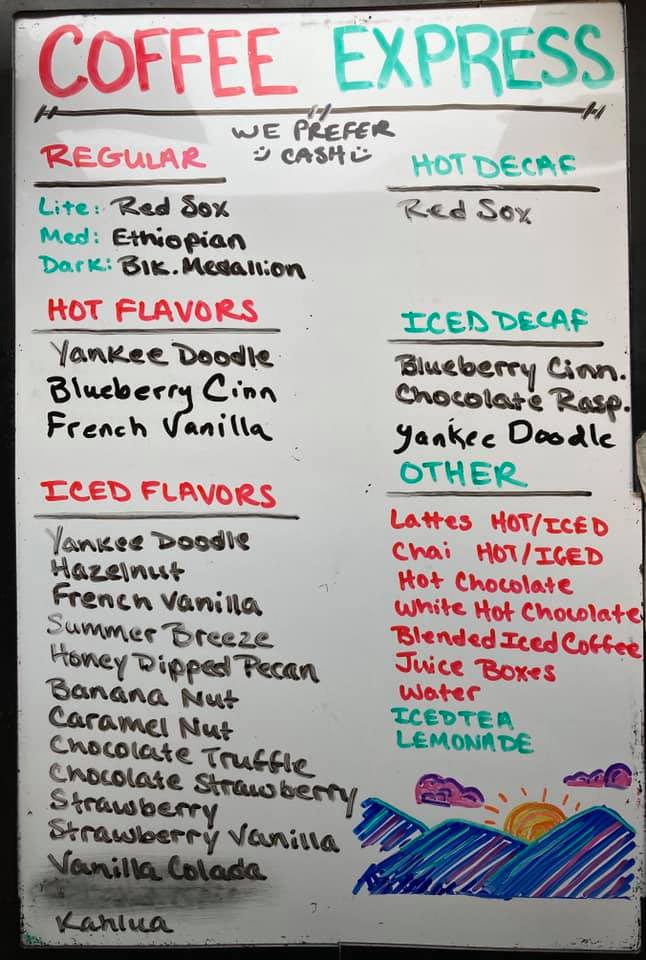 COFFEE EXPRESS
WE PREFER
CASH
REGULAR
Lite: Red Sox
Med: Ethiopian
Dark: Blk. Medallion
HOT FLAVORS
Yankee Doodle
Blueberry Cinn
French Vanilla
ICED FLAVORS
Yankee Doodle
Hazelnut
French Vanilla
Summer Breeze
Honey Dipped Pecan
Banana Nut
Caramel Nut
Chocolate Truffle
Chocolate Strawberry
Strawberry
Strawberry Vanilla
Vanilla Colada
Kahlua
HOT DECAF
Red Sox
ICED DECAF
Blueberry Cinn.
Chocolate Rasp.
Yankee Doodle
OTHER
Lattes HOT/ICED
Chai HOT/ICED
Hot Chocolate
White Hot Chocolate
Blended Iced Coffee
Juice Boxes
Water
ICED TEA
LEMONADE